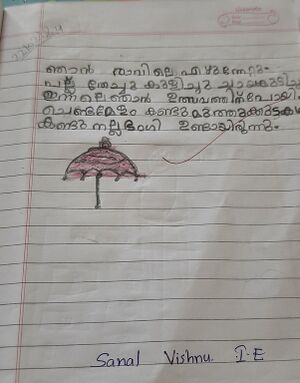 ഞാൻ രാവിലെ എഴുന്നേറ്റും
പല്ല് തേച്ചു കുളിച്ചു ചായകുടിച്ചു
ഇന്നലെ ഞാൻ ഉത്സവത്തിന് പോയി
ചെണ്ടമേളം കണ്ടു മുത്തുക്കുട
കണ്ടു നല്ല ഭംഗി ഉണ്ടായിരുന്നു.
Sanal Vishnu. I-E